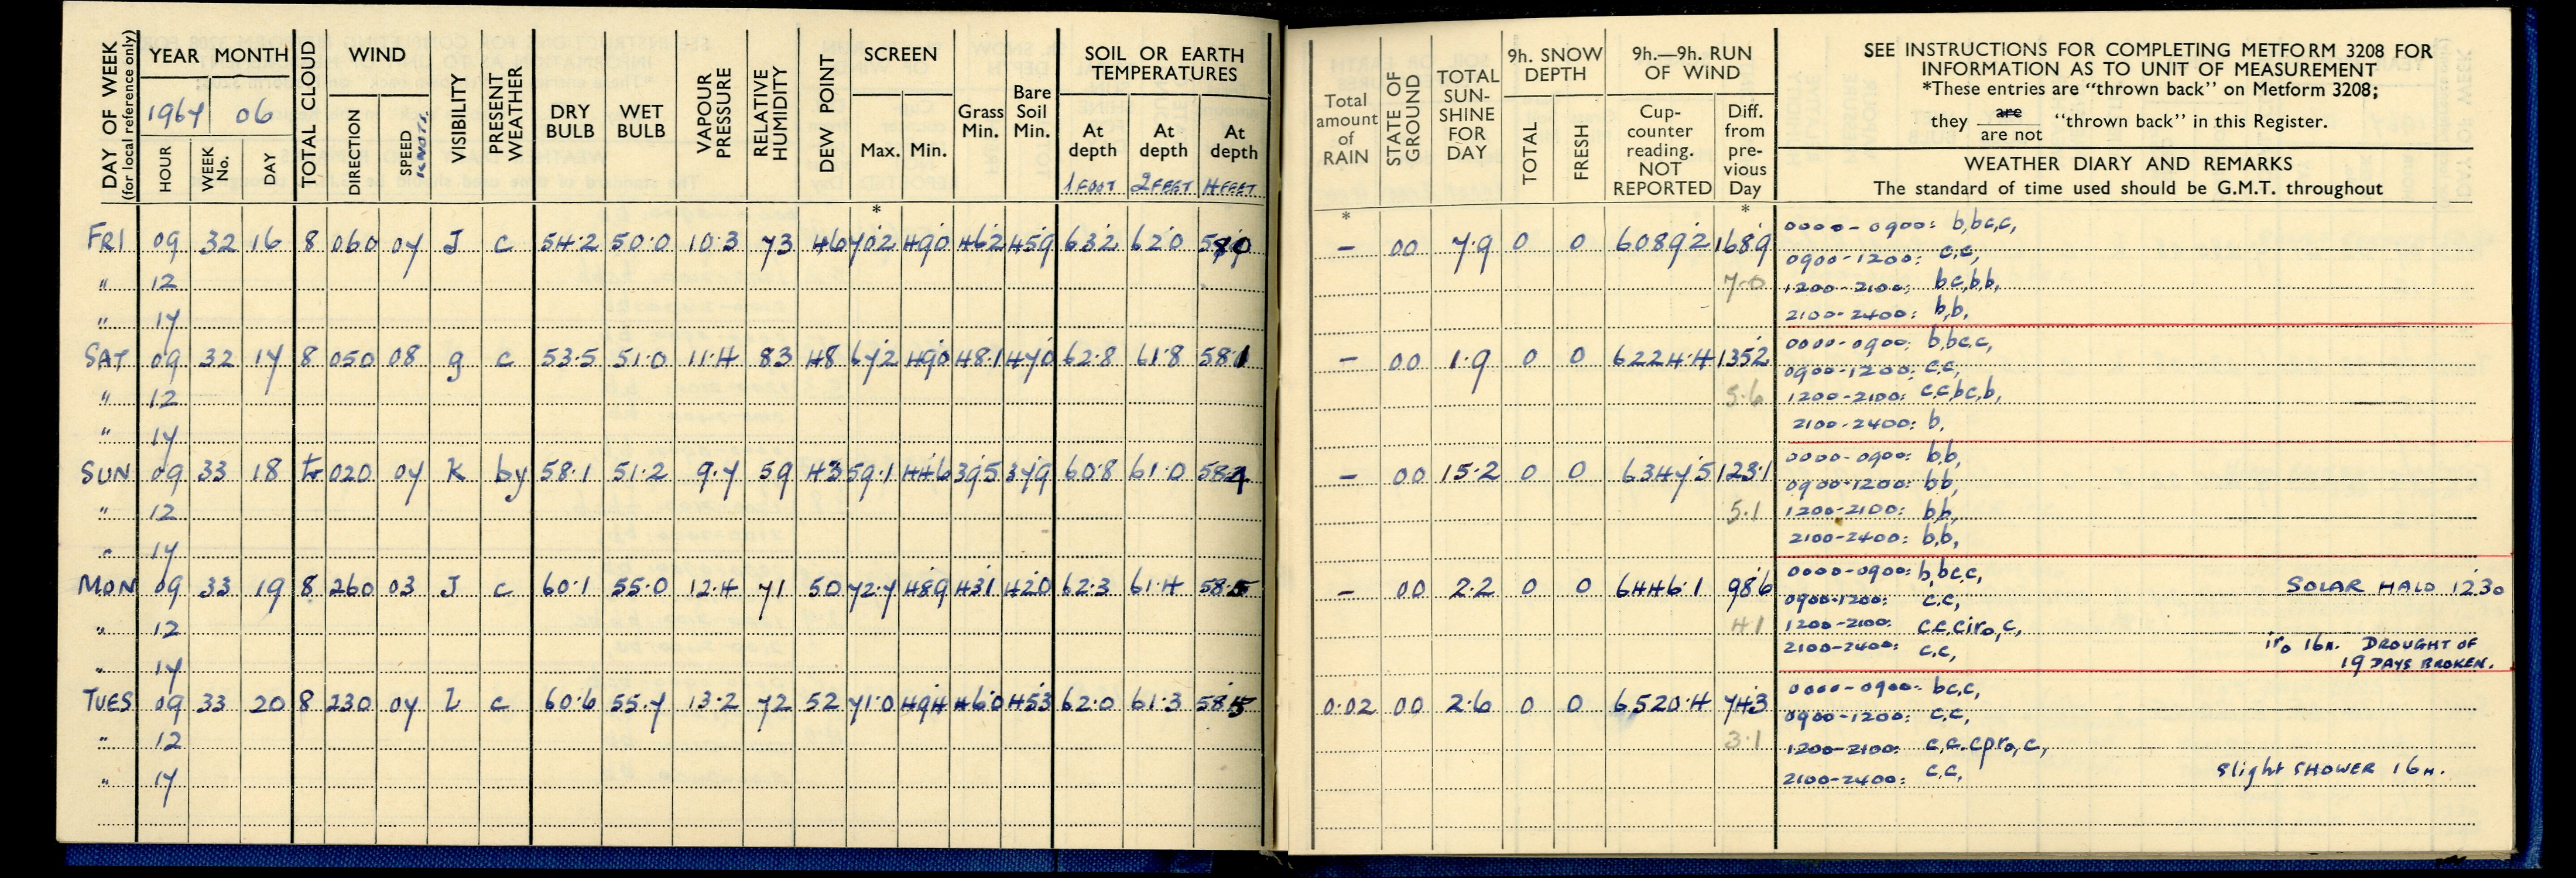 DAY OF WEEK (for local reference only) YEAR MONTH TOTAL CLOUD WIND VISIBILITY PRESENT WEATHER DRY BULB WET BULB VAPOUR PRESSURE RELATIVE HUMIDITY DEW POINT SCREEN Grass Min. Bare Soil Min. SOIL OR EARTH TEMPERATURES
1967 06
HOUR WEEK No. DAY DIRECTION SPEED KNOTS. Max. Min. At depth At depth At depth
1 FOOT 2 FEET 4 FEET
Total amount of RAIN STATE OF GROUND TOTAL SUN-SHINE FOR DAY 9h. SNOW DEPTH 9h.—9h. RUN OF WIND
TOTAL FRESH Cup-counter reading. NOT REPORTED Diff. from pre-vious Day
SEE INSTRUCTIONS FOR COMPLETING METFORM 3208 FOR
INFORMATION AS TO UNIT OF MEASUREMENT
*These entries are "thrown back" on Metform 3208;
they are / are not "thrown back" in this Register.
WEATHER DIARY AND REMARKS
The standard of time used should be G.M.T. throughout
* * *
FRI 09 32 16 8 060 07 J c 54.2 50.0 10.3 73 46 70.2 49.0 46.2 45.9 63.2 62.0 — 00 7.9 0 0 6089.2 168.9 0000-0900: b,bc,c,
0900-1200: c,c,
" 12 7.0 1200-2100: bc,b,b,
" 17 2100-2400: b,b,
SAT 09 32 17 8 050 08 g c 53.5 51.0 11.4 83 48 67.2 49.0 48.1 47.0 62.8 61.8 58.1 — 00 1.9 0 0 6224.4 135.2 0000-0900: b,bc,c,
0900-1200: c,c,
" 12 5.6 1200-2100: c,c,bc,b,
" 17 2100-2400: b,
SUN 09 33 18 tr 020 07 K by 58.1 51.2 9.7 59 43 59.1 44.6 39.5 37.9 60.8 61.0 58.4 — 00 15.2 0 0 6347.5 123.1 0000-0900: b,b,
0900-1200: b,b,
" 12 5.1 1200-2100: b,b,
" 17 2100-2400: b,b,
MON 09 33 19 8 260 03 J c 60.1 55.0 12.4 71 50 72.7 48.9 43.1 42.0 62.3 61.4 58.5 — 00 2.2 0 0 6446.1 98.6 0000-0900: b,bc,c, SOLAR HALO 1230
0900-1200: c,c,
" 12 4.1 1200-2100: c,c,ciro,c,
2100-2400: c,c, iro 16h. DROUGHT OF
" 17 19 DAYS BROKEN.
TUES 09 33 20 8 230 07 c 60.6 55.7 13.2 72 52 71.0 49.4 46.0 45.3 62.0 61.3 58.5 0.02 00 2.6 0 0 6520.4 74.3 0000-0900: bc,c,
0900-1200: c,c,
" 12 3.1 1200-2100: c,c,cpro,c,
" 17 2100-2400: c,c, Slight SHOWER 16H.